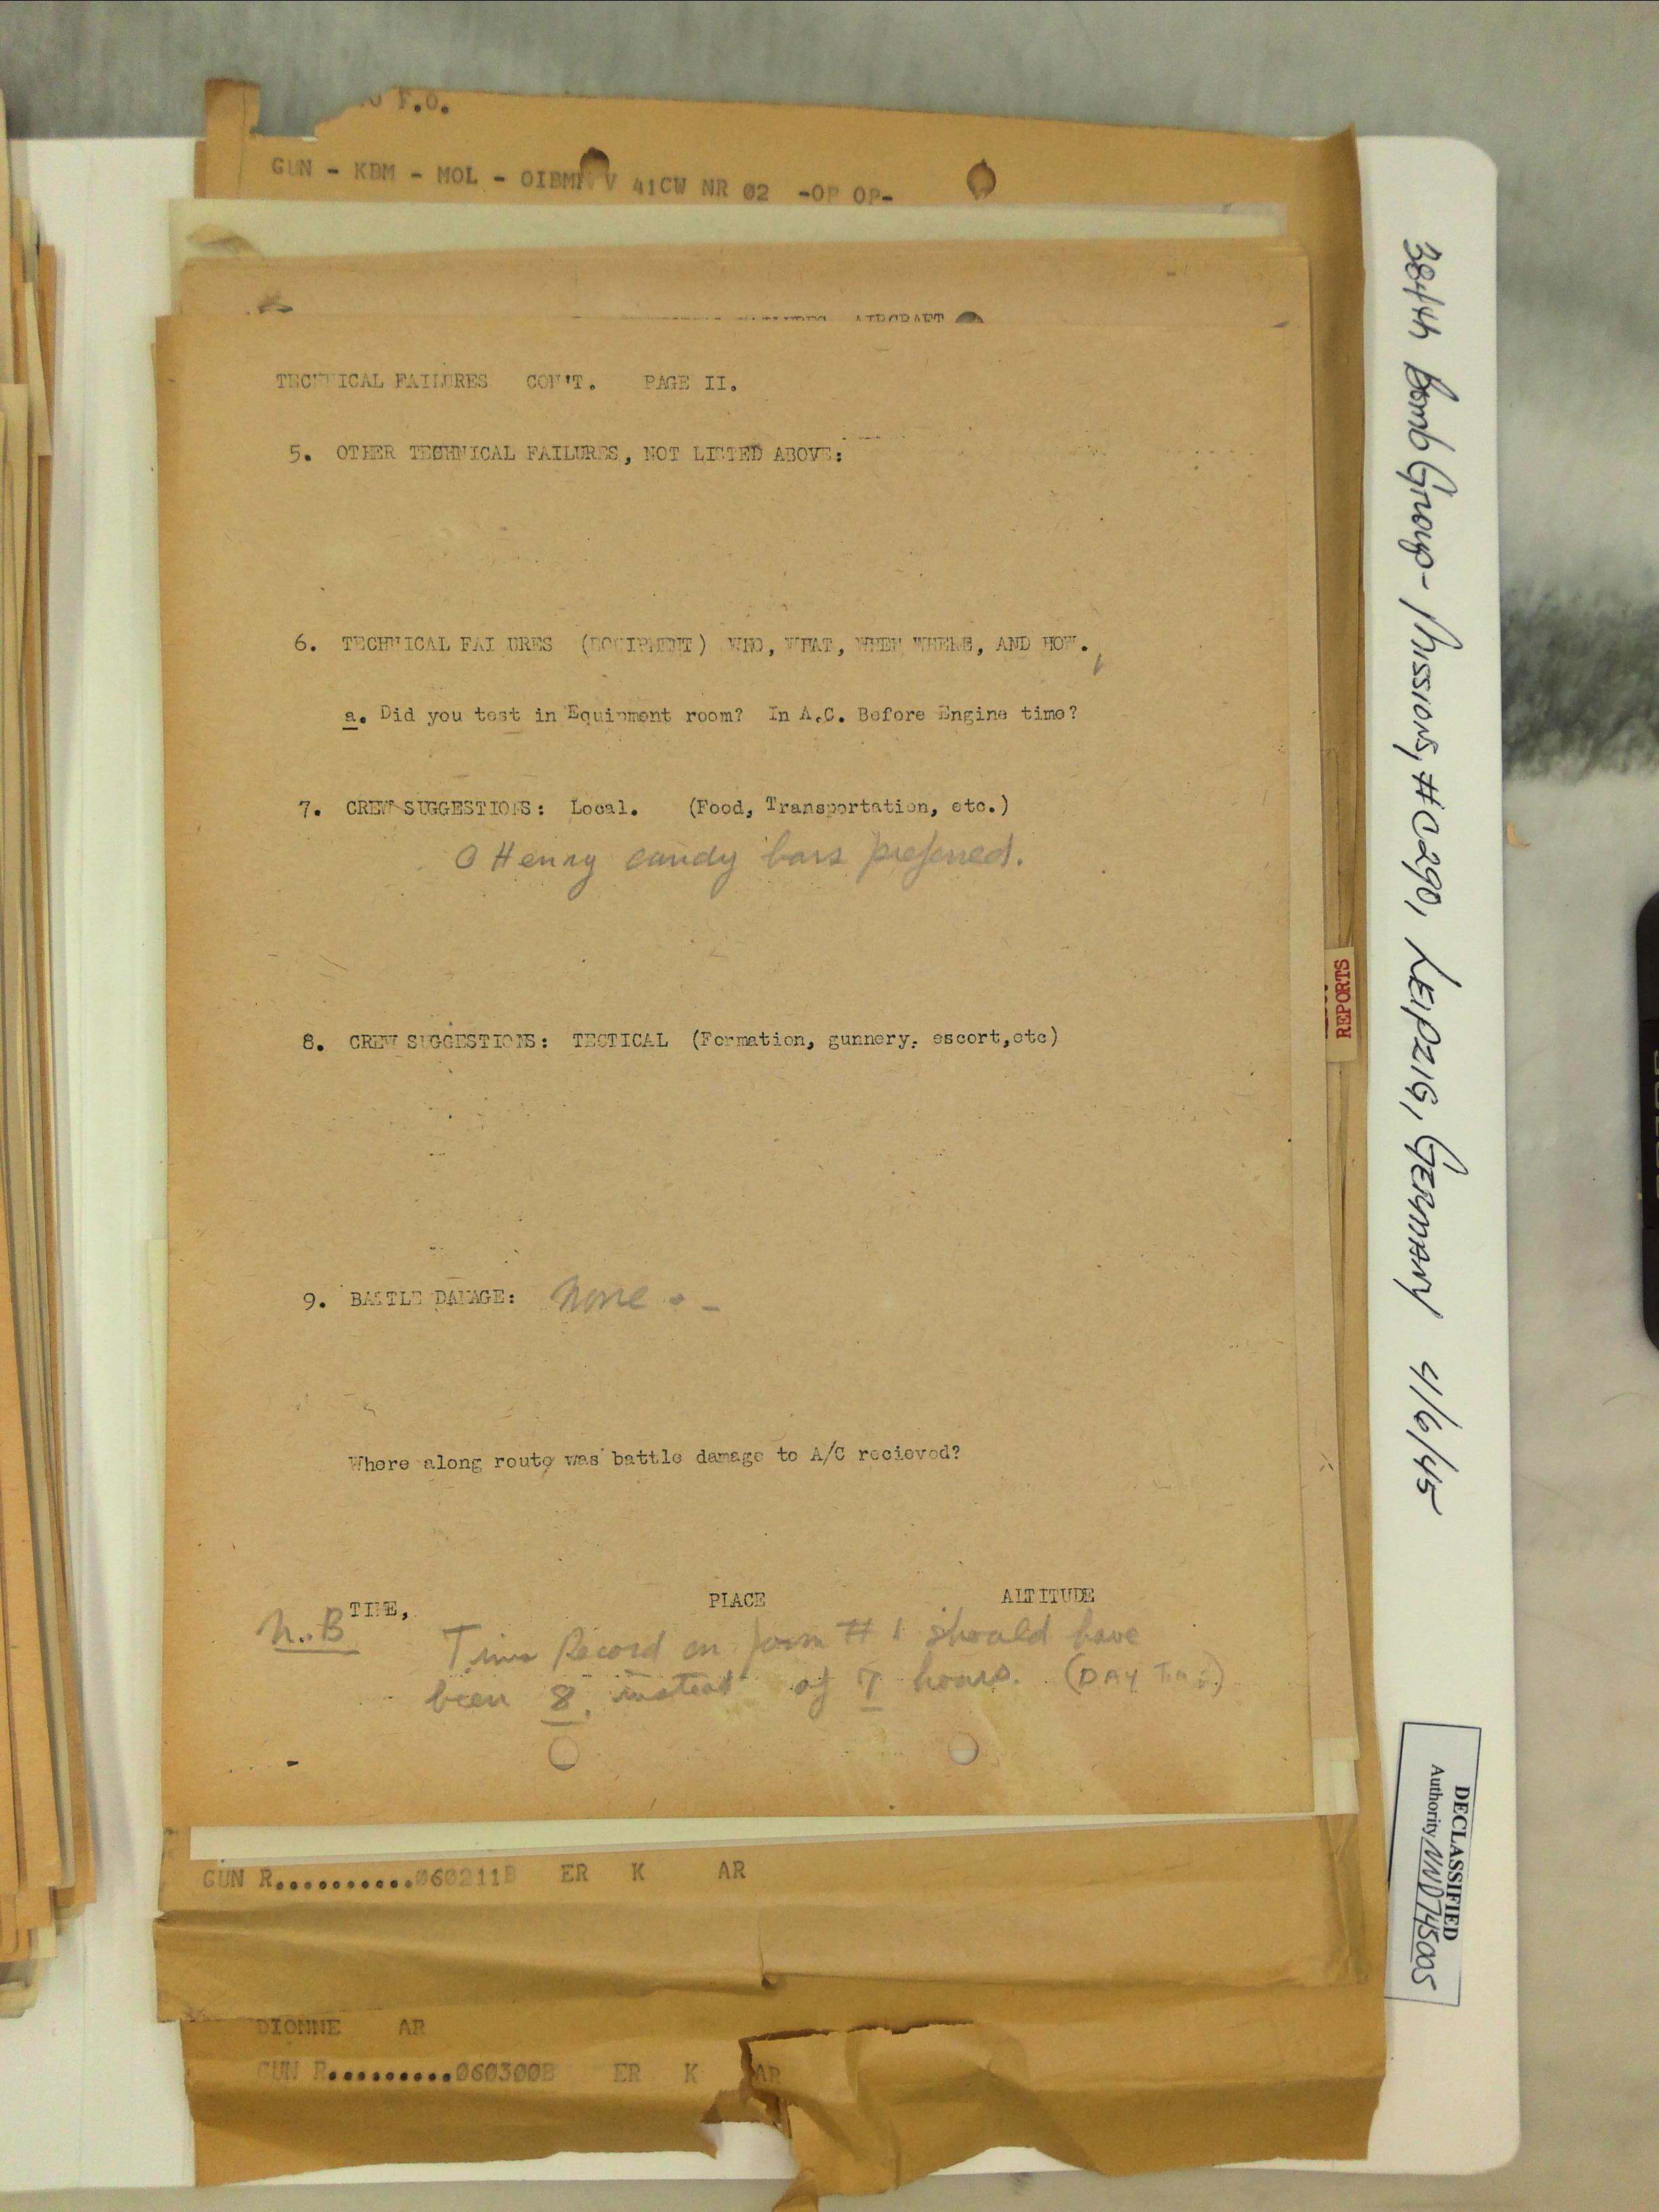 F.O.
GUN - KBM - MOL - OIBMN V 41CW NR 02 -OP OP-
AIRCRAFT
TECHNICAL FAILURES CON'T. PAGE II.
5. OTHER TECHNICAL FAILURES, NOT LISTED ABOVE:
6. TECHNICAL FAI URES (EQUIPMENT) WHO, WHAT, WHEN WHERE, AND HOW.
a. Did you test in Equipment room? In A.C. Before Engine time?
7. CREW SUGGESTIONS: Local. (Food, Transportation, etc.)
O Henry candy bars preferred.
8. CREW SUGGESTIONS: TECTICAL (Formation, gunnery. escort,etc)
9. BATTLE DAMAGE: None. -
Where along route was battle damage to A/C recieved?
TIME, PLACE ALTITUDE
N.B Time Record on form #1 should have
been 8. instead of 7 hours. (DAY Time)
GUN R..........060211B ER K AR
DIONNE AR
GUN R.........060300B ER K AR
REPORTS
384th Bomb Group - Missions, #0290, LEIPZIG, GERMANY 4/6/45
DECLASSIFIED
Authority NND745005